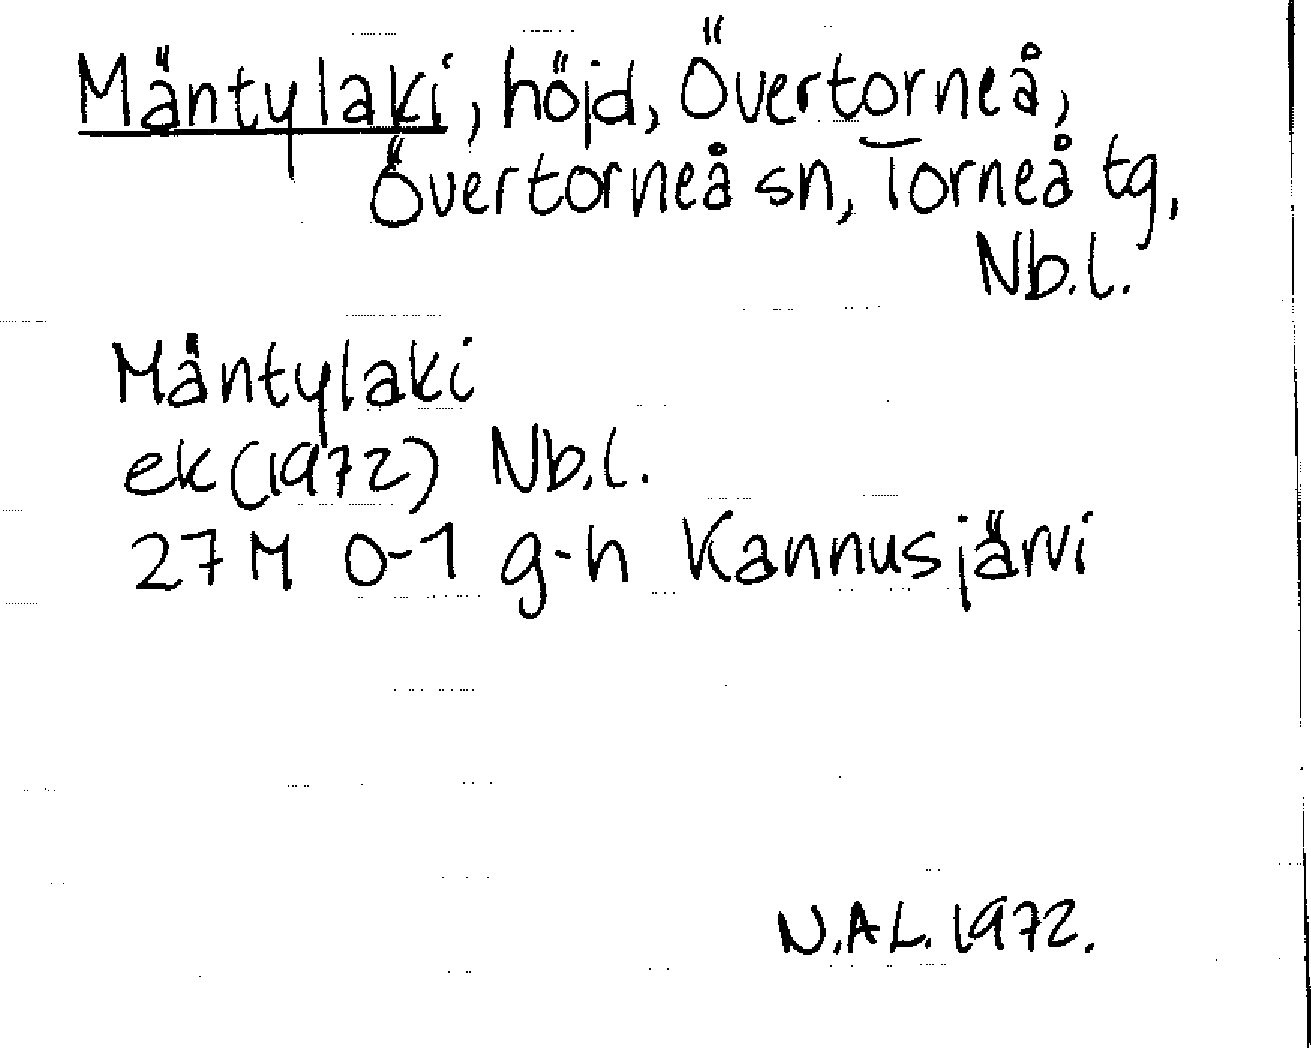 Mäntylaki, höjd, Övertorneå,
Övertorneå sn, Torneå tg,
Nb.l.
Mäntylaki
ek (1972) Nb.l.
27 M 0-1 g-h Kannusjärvi
N.A.L. 1972.